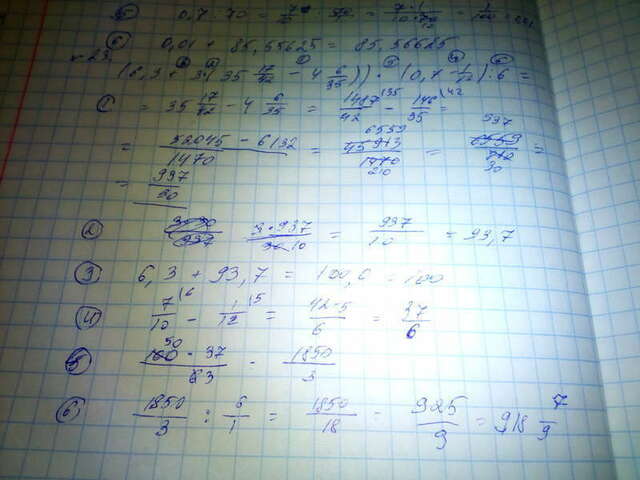 0,7 : 70 = 7/10 : 70 = 7·1/10·70 = 1/100 = 0,01
0,01 + 85,55625 = 85,56625
(6,3 + 3(35 17/42 - 4 6/35)) · (0,7 - 1/12) : 6 =
① = 35 17/42 - 4 6/35 = 1487/42 (35 - 146/35 (42 =
= 52045 - 6132/1470 = 45913/1470 6559/210 = 6559/210 937/30 =
= 937/30
② 3·937/30 10 = 937/10 = 93,7
③ 6,3 + 93,7 = 100,0 = 100
④ 7/10 (6 - 1/12 (5 = 42-5/6 = 37/6
⑤ 100 50 · 37/6 3 - 1850/3
⑥ 1850/3 : 6/1 = 1850/18 = 925/9 = 918 7/9